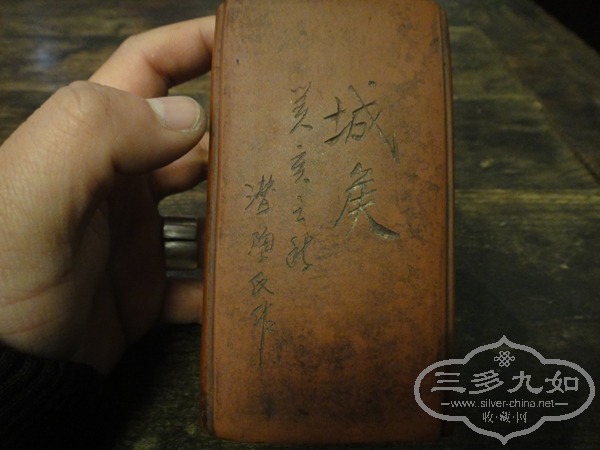 城矦
癸亥之秋
陶氏作
三多九如
—www.silver-china.net—
收·藏·网